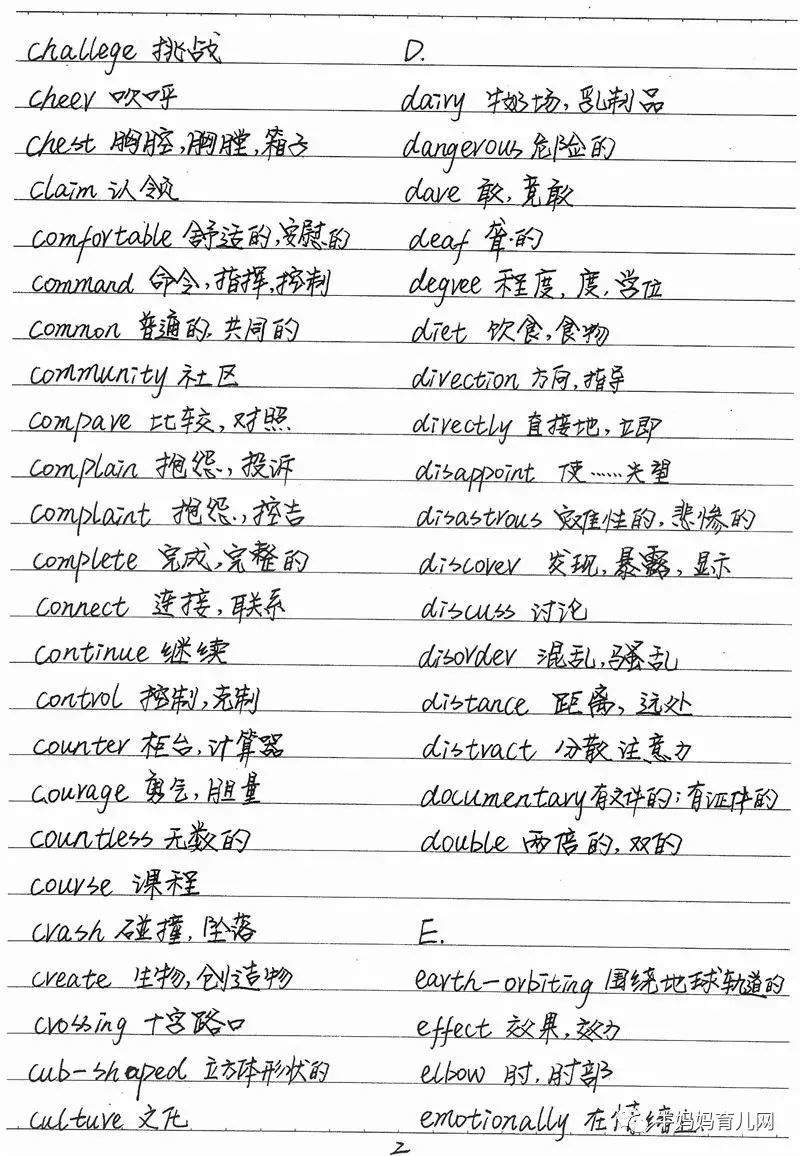 challege 挑战
cheer 欢呼
chest 胸腔,胸膛,箱子
claim 认领
comfortable 舒适的,安慰的
command 命令,指挥,控制
common 普通的,共同的
community 社区
compare 比较,对照
complain 抱怨,投诉
complaint 抱怨,控告
complete 完成,完整的
connect 连接,联系
continue 继续
control 控制,克制
counter 柜台,计算器
courage 勇气,胆量
countless 无数的
course 课程
crash 碰撞,坠落
create 生物,创造物
crossing 十字路口
cub-shaped 立方体形状的
culture 文化
D.
dairy 牛奶场,乳制品
dangerous 危险的
dare 敢,竟敢
deaf 聋的
degree 程度,度,学位
diet 饮食,食物
direction 方向,指导
directly 直接地,立即
disappoint 使……失望
disastrous 灾难性的,悲惨的
discover 发现,暴露,显示
discuss 讨论
disorder 混乱,骚乱
distance 距离,远处
distract 分散注意力
documentary 有文件的;有证件的
double 两倍的,双的
E.
earth-orbiting 围绕地球轨道的
effect 效果,效力
elbow 肘,肘部
emotionally 在情绪
牛妈妈育儿网
2